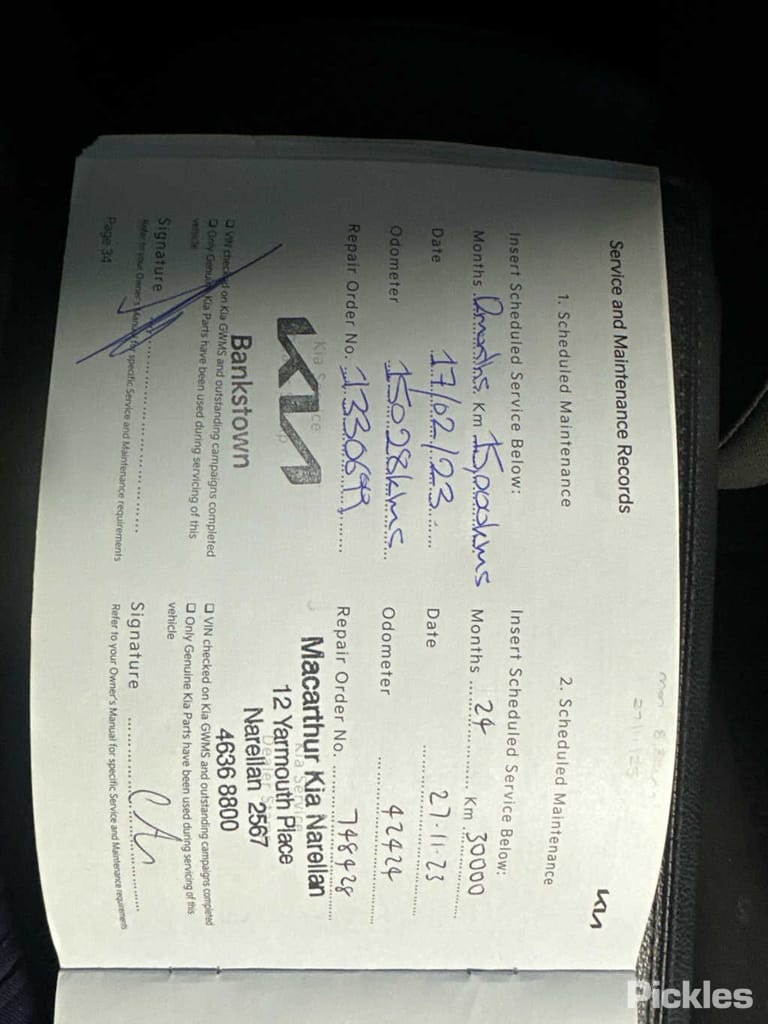 Service and Maintenance Records
KIA
1. Scheduled Maintenance
Insert Scheduled Service Below:
Months 12months Km 15,000kms
Date 17/02/23
Odometer 15028kms
Repair Order No. 1330699
Kia Service
KIA
Bankstown
☐ VIN checked on Kia GWMS and outstanding campaigns completed
☐ Only Genuine Kia Parts have been used during servicing of this
vehicle
Signature
Refer to your Owner's Manual for specific Service and Maintenance requirements
Page 34
2. Scheduled Maintenance
Insert Scheduled Service Below:
Months 24 Km 30000
Date 27.11.23
Odometer 42424
Repair Order No. 748428
Kia Service
Dealer Stamp
Macarthur Kia Narellan
12 Yarmouth Place
Narellan 2567
4636 8800
☐ VIN checked on Kia GWMS and outstanding campaigns completed
☐ Only Genuine Kia Parts have been used during servicing of this
vehicle
Signature
Refer to your Owner's Manual for specific Service and Maintenance requirements
Pickles